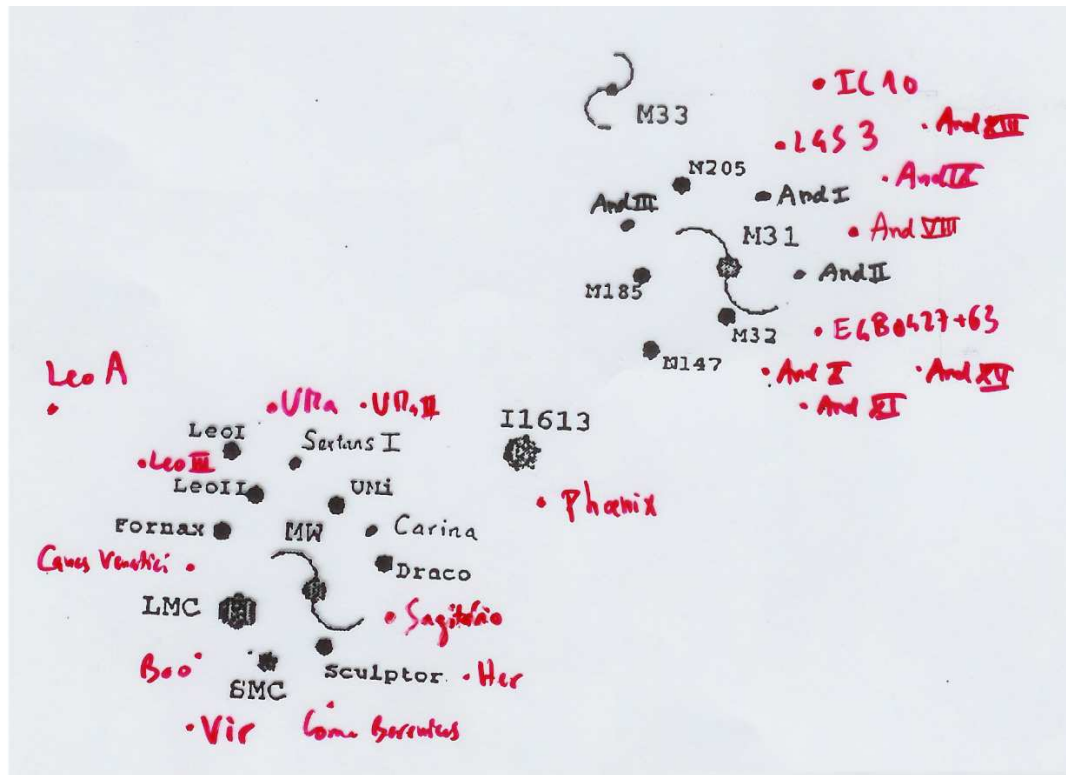 IC10
M33
And XIII
LGS 3
N205
And IX
And III
And I
M31
And VIII
And II
M185
M32
EGB0427+63
N147
And X
And XV
And XI
Leo A
UMa
UMa II
I1613
LeoI
Sextans I
Leo III
LeoII
UMi
Phœnix
Fornax
MW
Carina
Canes Venatici
Draco
LMC
Sagitário
Boo
SMC
Sculptor
Her
Vir
Coma Berenices